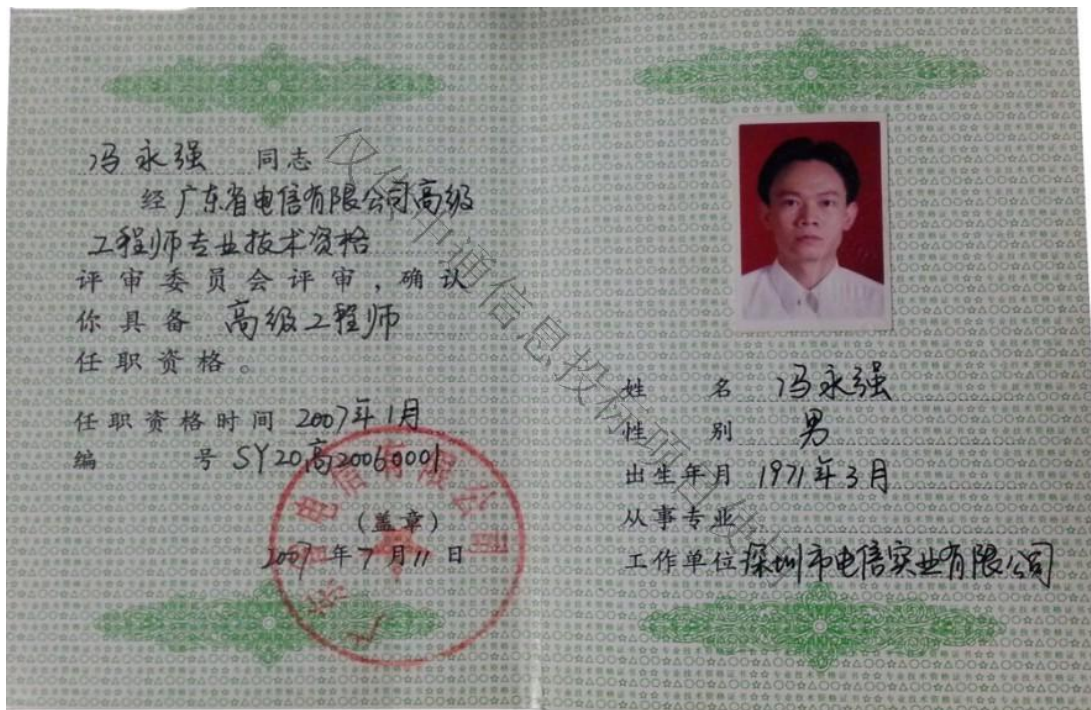 冯永强 同志
经 广东省电信有限公司高级
工程师专业技术资格
评审委员会评审，确认
你具备 高级工程师
任职资格。
任职资格时间 2007年1月
编 号 SY20高20060001
(盖章)
2007年7月11日
广东省电信有限公司
姓 名 冯永强
性 别 男
出生年月 1971年3月
从事专业
工作单位 深圳市电信实业有限公司